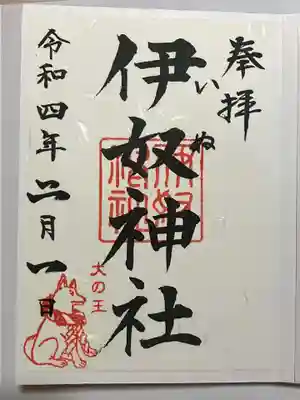 奉拝
伊奴神社
いぬ
令和四年二月一日
犬の王